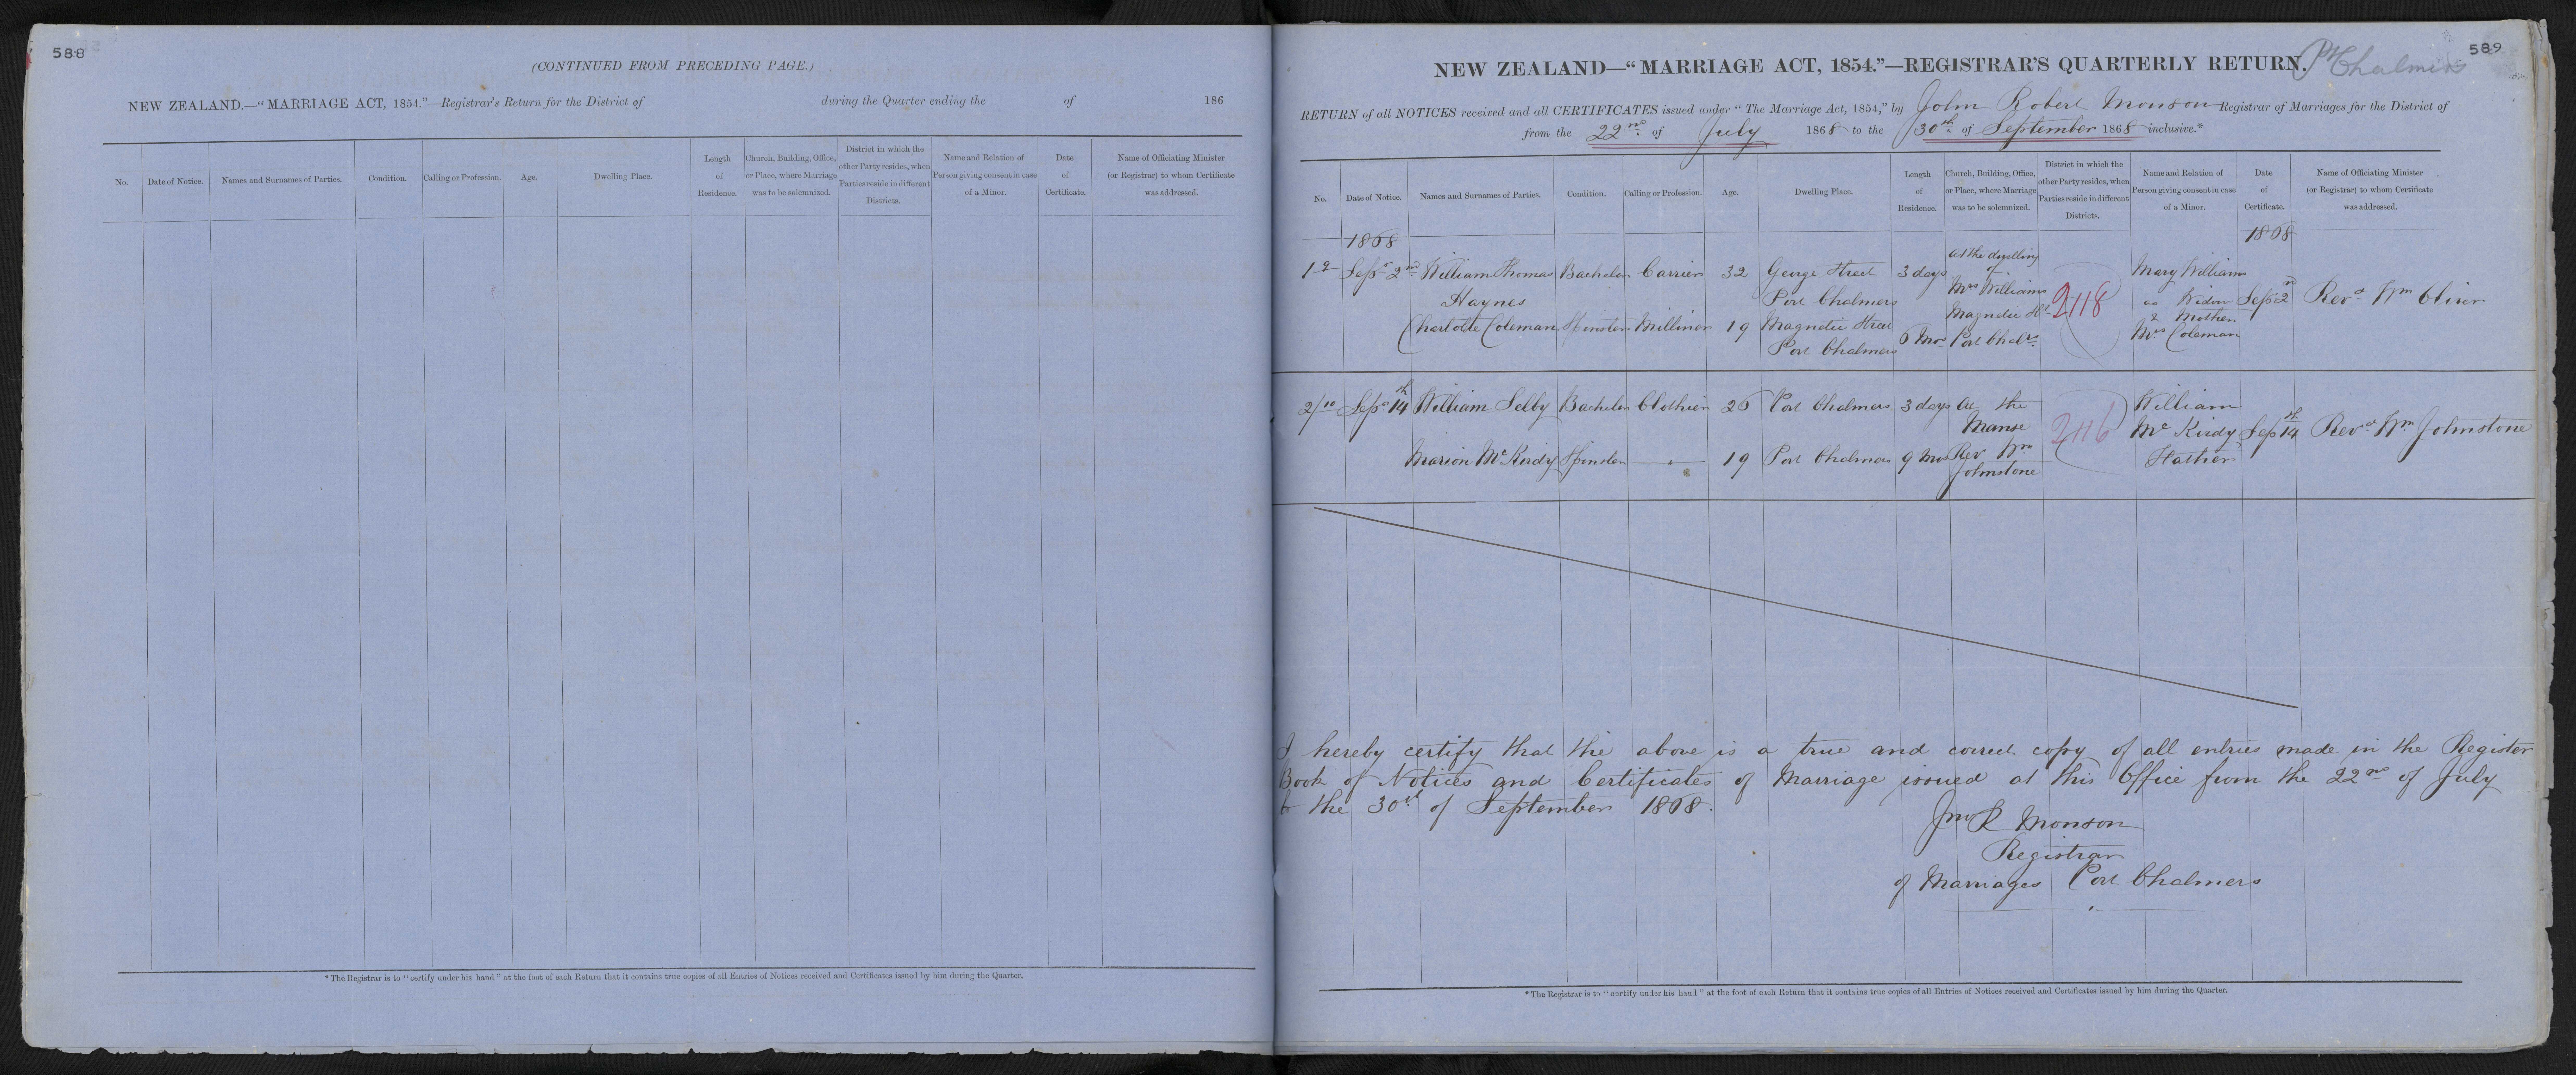 588
(CONTINUED FROM PRECEDING PAGE.)
NEW ZEALAND.—“MARRIAGE ACT, 1854.”—Registrar's Return for the District of during the Quarter ending the of 186
No.
Date of Notice.
Names and Surnames of Parties.
Condition.
Calling or Profession.
Age.
Dwelling Place.
Length
of
Residence.
Church, Building, Office,
or Place, where Marriage
was to be solemnized.
District in which the
other Party resides, when
Parties reside in different
Districts.
Name and Relation of
Person giving consent in case
of a Minor.
Date
of
Certificate.
Name of Officiating Minister
(or Registrar) to whom Certificate
was addressed.
*The Registrar is to “certify under his hand” at the foot of each Return that it contains true copies of all Entries of Notices received and Certificates issued by him during the Quarter.
589
Pt Chalmers
NEW ZEALAND—“MARRIAGE ACT, 1854.”—REGISTRAR'S QUARTERLY RETURN.
RETURN of all NOTICES received and all CERTIFICATES issued under “The Marriage Act, 1854,” by John Robert Monson Registrar of Marriages for the District of
from the 22nd of July 1868 to the 30th of September 1868 inclusive.*
No.
Date of Notice.
Names and Surnames of Parties.
Condition.
Calling or Profession.
Age.
Dwelling Place.
Length
of
Residence.
Church, Building, Office,
or Place, where Marriage
was to be solemnized.
District in which the
other Party resides, when
Parties reside in different
Districts.
Name and Relation of
Person giving consent in case
of a Minor.
Date
of
Certificate.
Name of Officiating Minister
(or Registrar) to whom Certificate
was addressed.
1868
1868
1/9 Sepr 2nd
William Thomas
Haynes
Bachelor
Carrier
32
George Street
Port Chalmers
3 days
Charlotte Coleman
Spinster
Milliner
19
Magnetic Street
Port Chalmers
6 Mos
At the dwelling
of
Mrs Williams
Magnetic St
Port Chalrs
2118
Mary William
as Widow
& Mother
Mrs Coleman
Sep 2nd
Revd Wm Oliver
2/10 Sepr 14th
William Selby
Bachelor
Clothier
26
Port Chalmers
3 days
Marion McKirdy
Spinster
19
Port Chalmers
9 Mos
At the
Manse
Rev Wm
Johnstone
2116
William
McKirdy
Father
Sep 14th
Revd Wm Johnstone
I hereby certify that the above is a true and correct copy of all entries made in the Register
Book of Notices and Certificates of Marriage issued at this Office from the 22nd of July
to the 30th of September 1868.
Jno R Monson
Registrar
of Marriages Port Chalmers
*The Registrar is to “certify under his hand” at the foot of each Return that it contains true copies of all Entries of Notices received and Certificates issued by him during the Quarter.